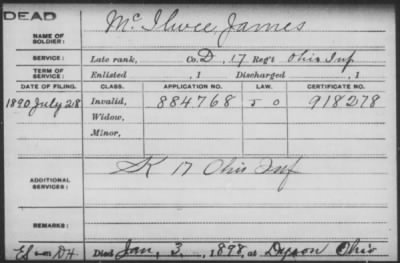 DEAD
NAME OF SOLDIER: McIlwee, James
SERVICE: Late rank, Co. D, 17 Reg't Ohio Inf
TERM OF SERVICE: Enlisted , 1 Discharged , 1
DATE OF FILING. CLASS. APPLICATION NO. LAW. CERTIFICATE NO.
1890 July 28 Invalid, 884768 918278
Widow,
Minor,
ADDITIONAL SERVICES: K 17 Ohio Inf
REMARKS:
Died Jan. 3, 1898, at Ohio